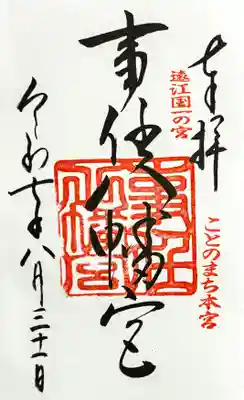 奉拝
遠江国一の宮
ことのまち本宮
事任八幡宮
令和七年八月三十一日